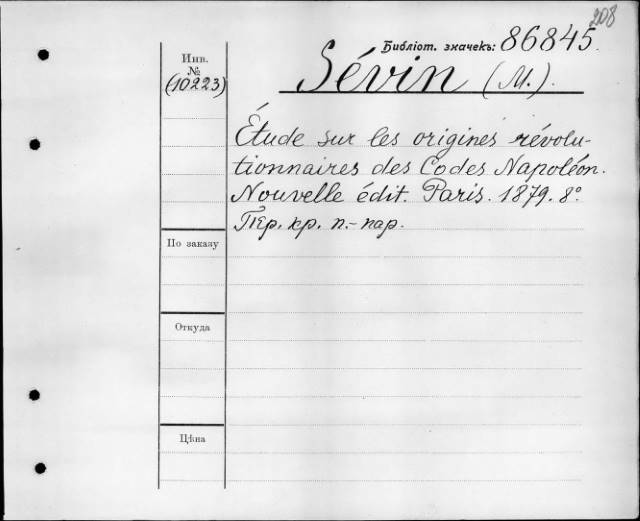 208
Библіот. значекъ: 86845.
Инв.
№
(10223)
Sévin (M.).
Étude sur les origines révolu-
tionnaires des Codes Napoléon.
Nouvelle édit. Paris. 1879. 8º.
Пер. кр. п.-пар.
По заказу
Откуда
Цѣна